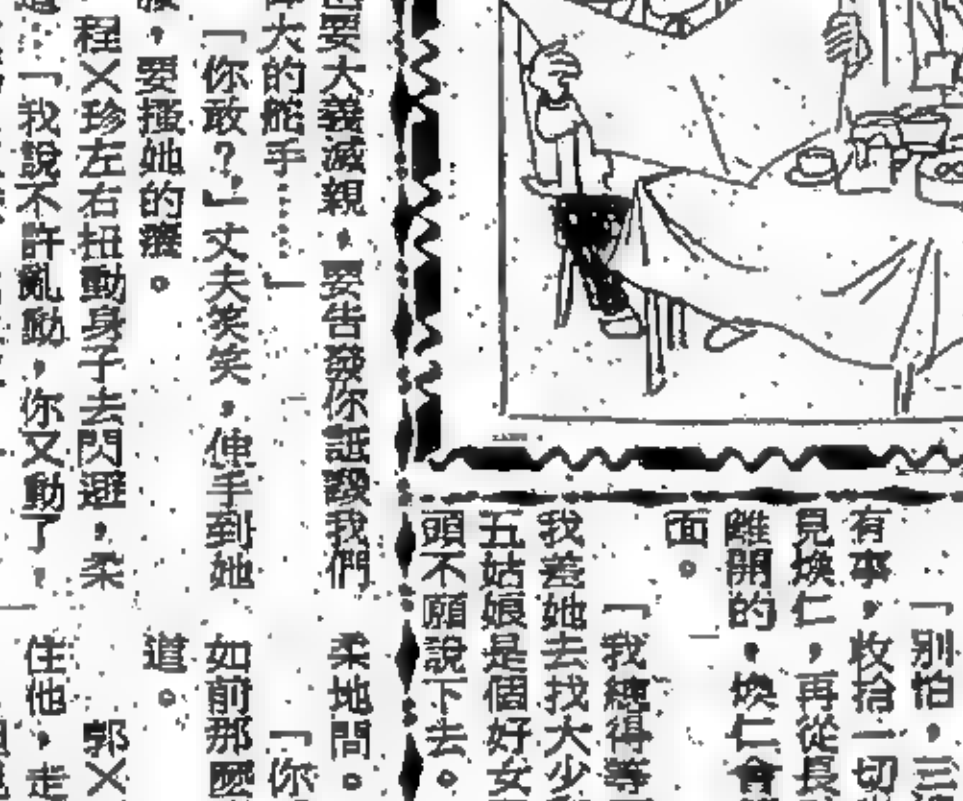 「別怕,三
有事,收拾一切
見煥仁,再從長
離開的,煥仁會
面。
「我總得等
我差她去找大少
五姑娘是個好女
頭不願說下去。
要大義滅親,要告發你詆毀我們
大的舵手……」
「你敢?」丈夫笑笑,伸手到她
,要搔她的癢。
程×珍左右扭動身子去閃避,柔
:「我說不許亂動,你又動了,
柔地問。
「你
如前那麼
道。
郭×
住他,走